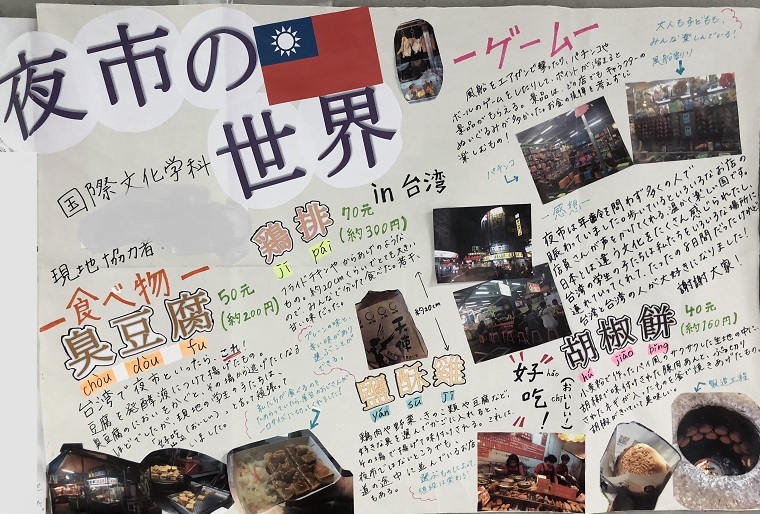 夜市の
世界
in 台湾
国際文化学科
現地協力者
ーゲームー
風船をエアガンで撃ったり、パチンコや
ボールのゲームをしたりして、ポイントが溜まると
景品がもらえる。景品は、どの店でもキャラクターの
ぬいぐるみが多かった。お金の価値を考えずに
楽しむもの!
大人も子どもも、
みんな楽しんでいる!
風船割り
パチンコ
ー感想ー
夜市は年齢を問わず多くの人で
賑わっていました。歩いているといろいろなお店の
店員さんが声をかけてくれる、温かく楽しい国です。
日本とは違う文化をたくさん感じられたし、
台湾の学生の子たちは私たちをいろいろな場所に
連れていってくれて、たったの8日間だったけど
台湾と台湾の人が大好きになりました!
謝謝大家!
ー食べ物ー
臭豆腐
chòu dòu fu
50元
(約200円)
台湾で夜市といったら、これ!
豆腐を発酵液につけて揚げたもの。
臭豆腐のにおいをかぐと、その場から逃げたくなる
ほどでしたが、現地の学生の子たちは、
「好吃(おいしい)」と
しました。
鶏排
jī pái
70元
(約300円)
フライドチキンやからあげのような
もの。約20cmくらいでとても大きい
ので、みんなで分けて食べた。若干、
甘い味だった。
約20cm
鹽酥雞
yán sū jī
鶏肉や野菜、きのこ類や豆腐など、
好きな具を選んでかごに入れると、
その場で揚げて味付けされる。これは、
夜市ではないところでも、
道の途中に並んでいるお店
もある。
選ぶものによって
値段は変わる
好吃!
hǎo
chī
おいしい!
胡椒餅
hú jiāo bǐng
40元
(約160円)
製造工程